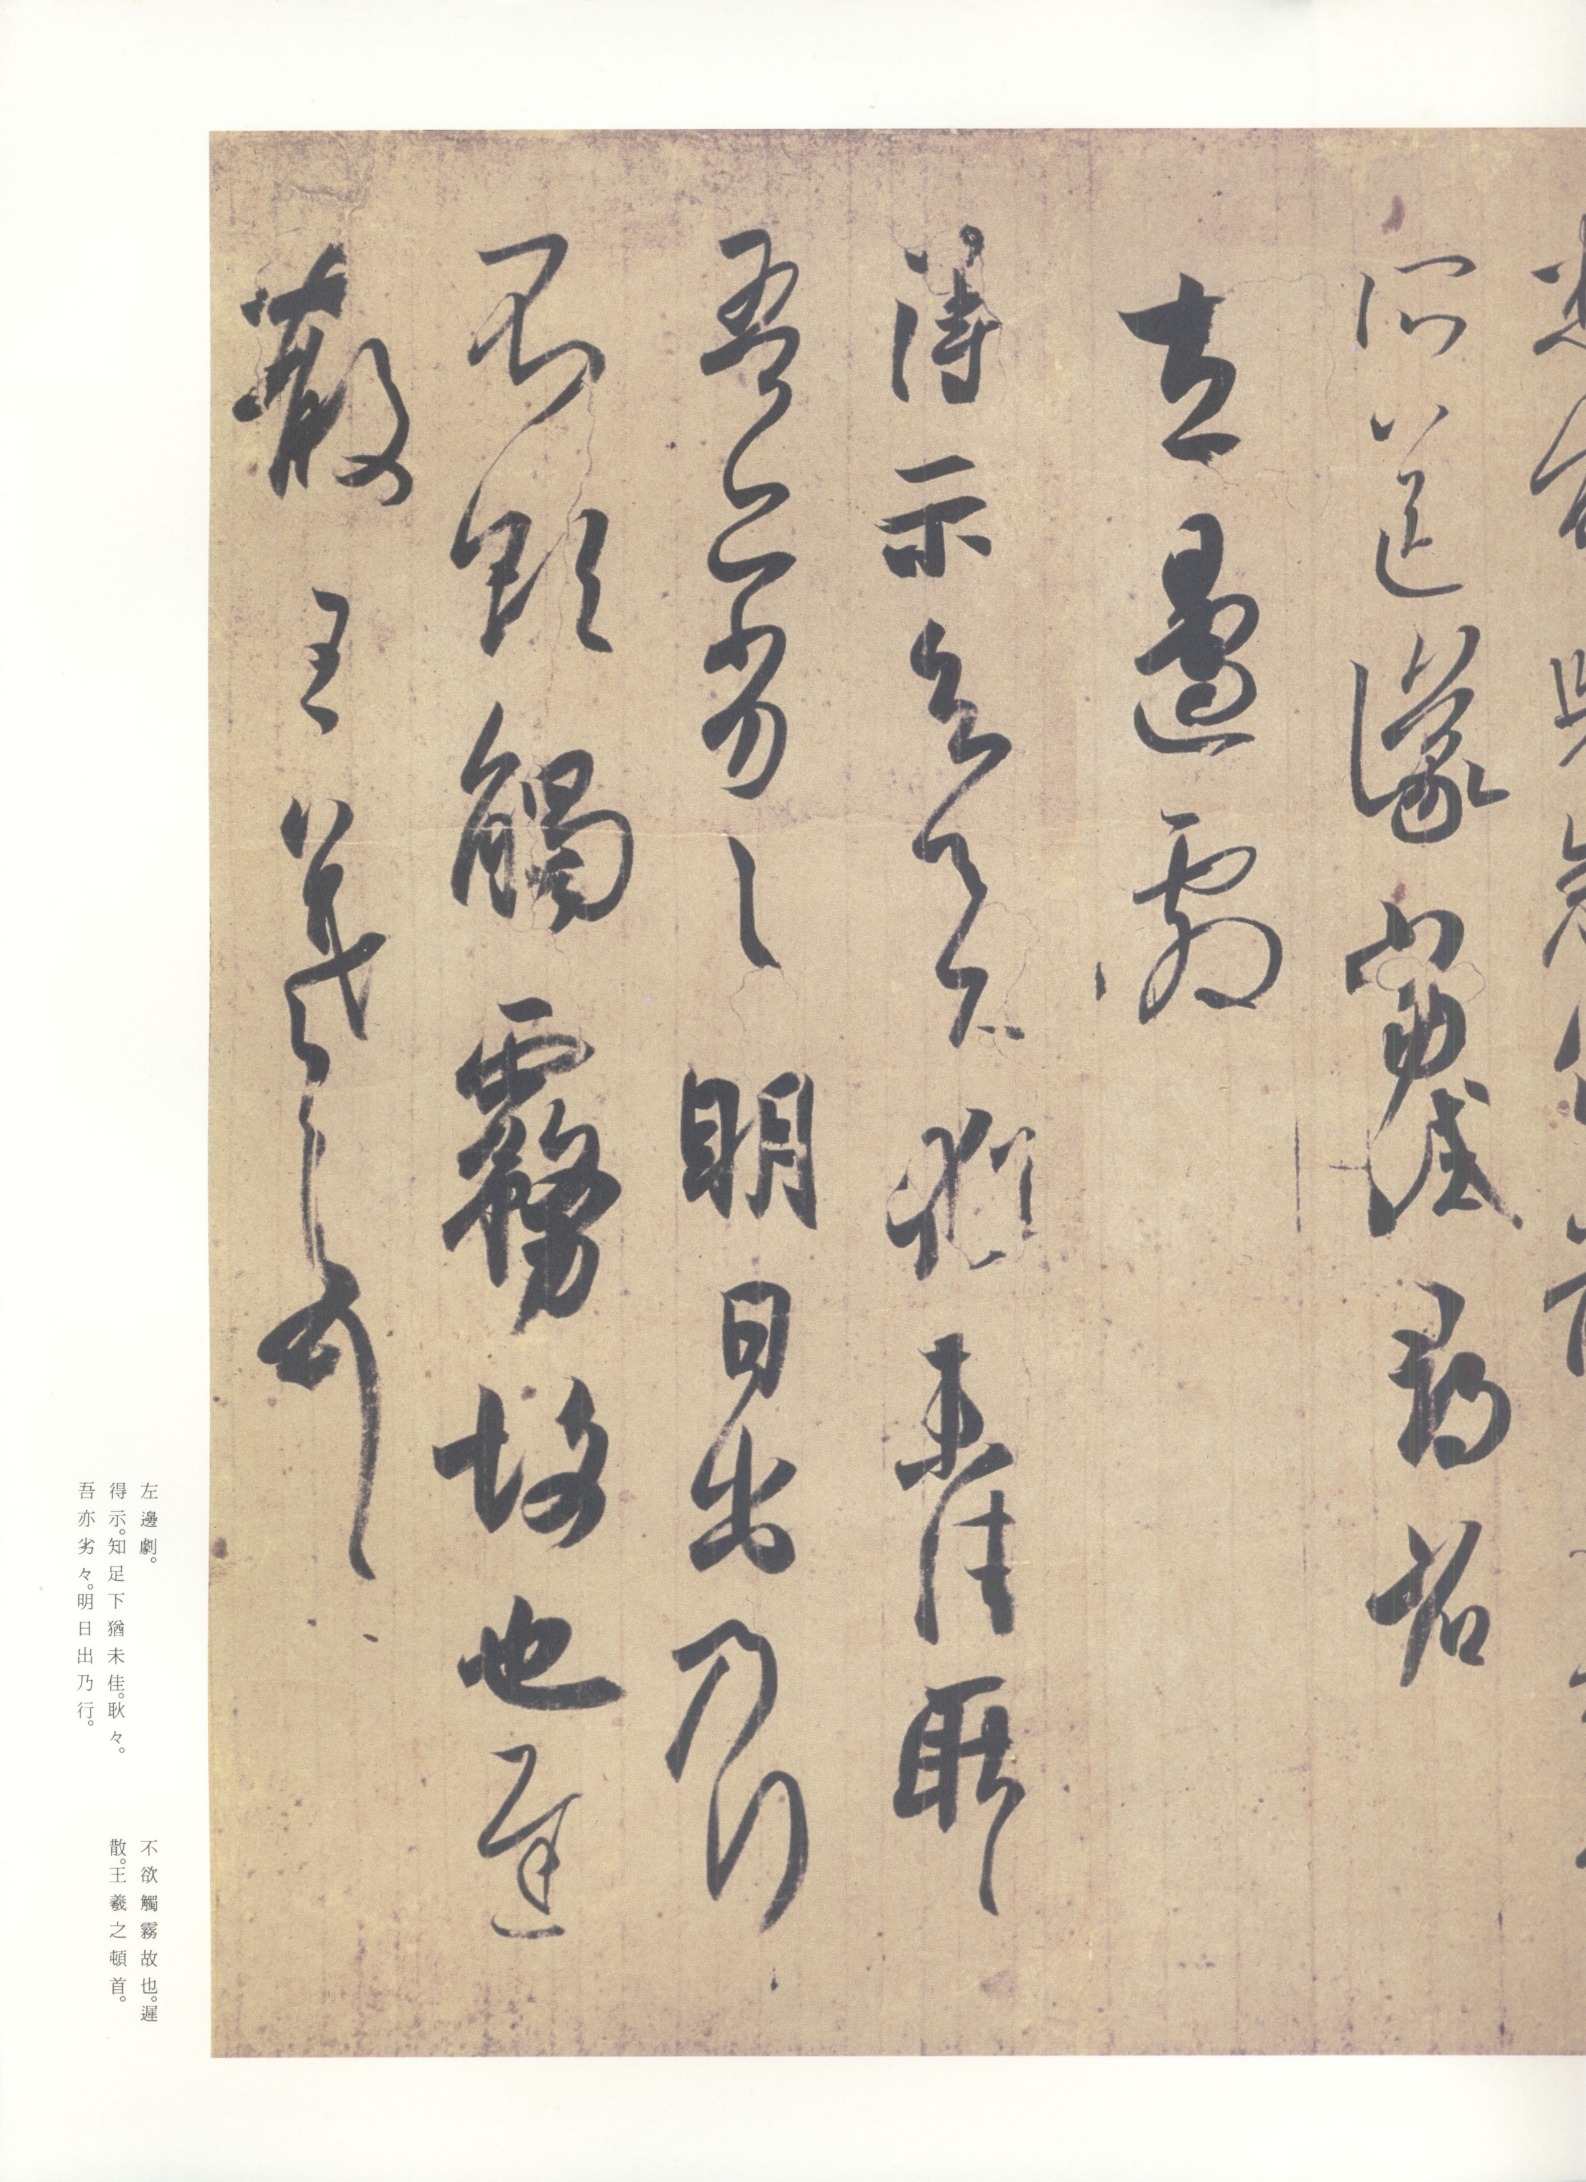 所送議當試尋省
左邊劇
得示知足下猶未佳耿々
吾亦劣々明日出乃行
不欲觸霧故也遲
散王羲之頓首
左邊劇。
得示。知足下猶未佳。耿々。
吾亦劣々。明日出乃行。
不欲觸霧故也。遲
散。王羲之頓首。